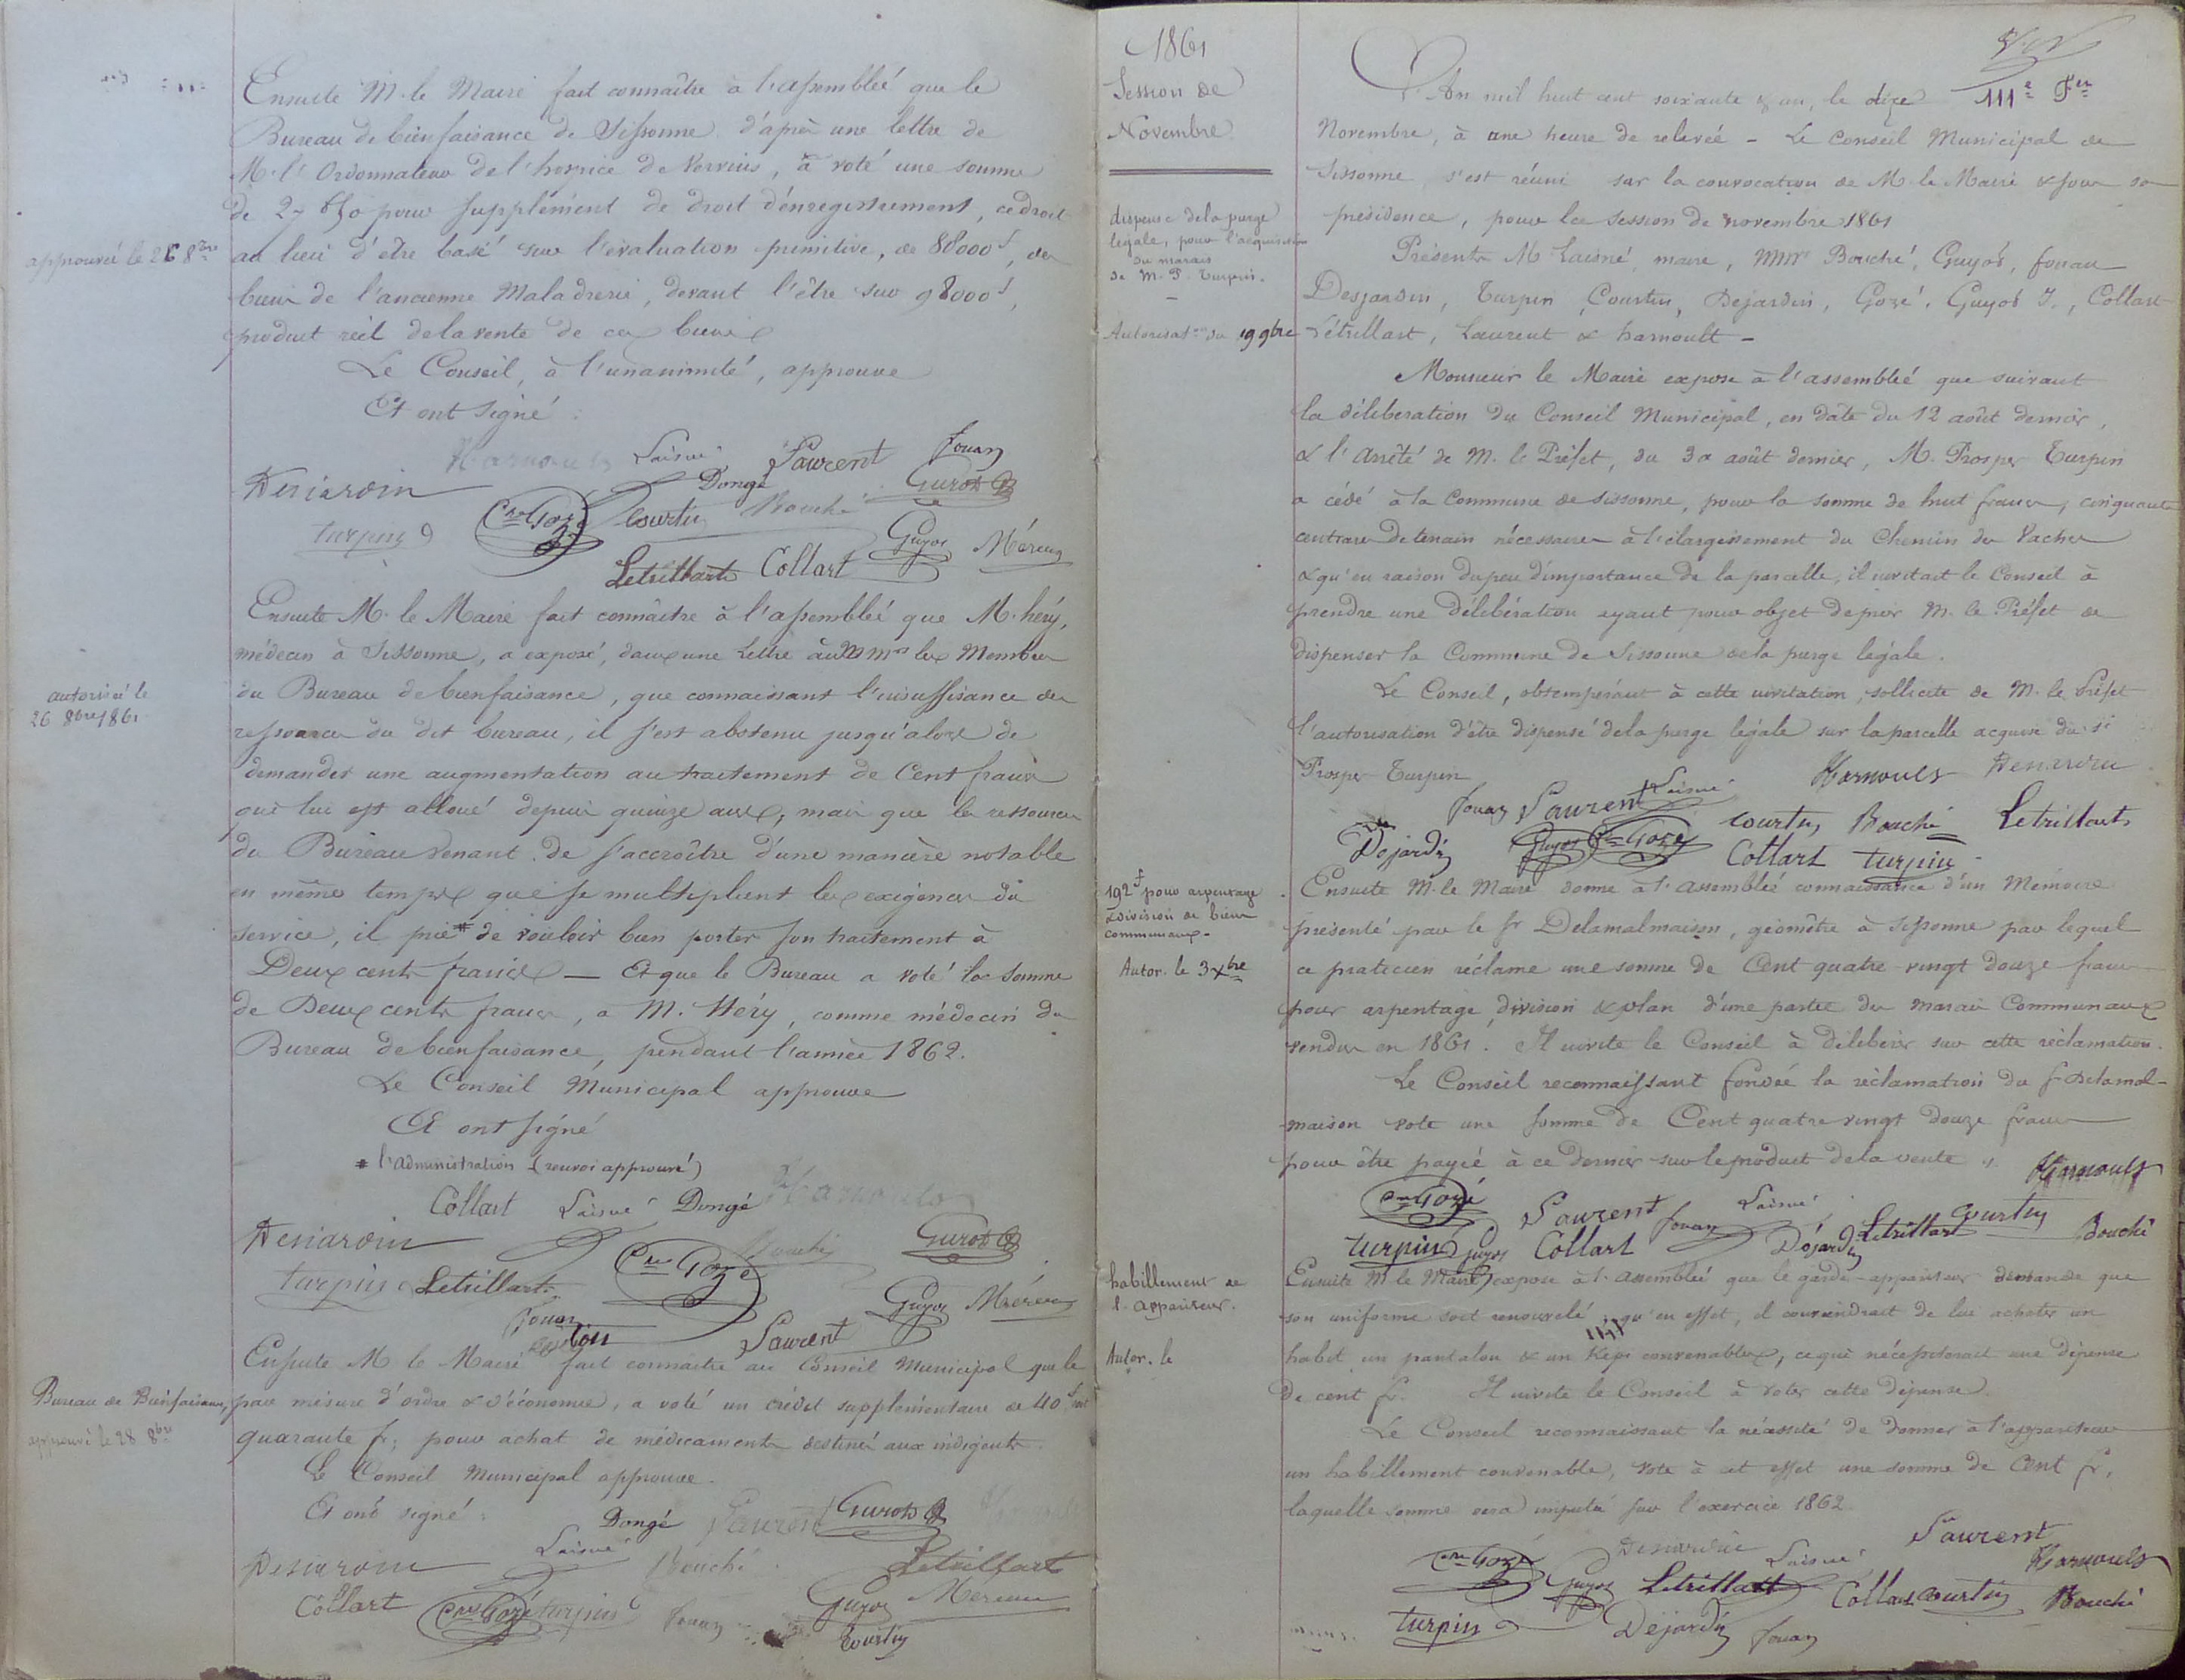 Ensuite M. le Maire fait connaître à l'assemblée que le
Bureau de bienfaisance de Sissonne, d'après une lettre de
M. l'Ordonnateur de l'hospice de Vervins, a voté une somme
de pour supplément de droit d'enregistrement, ce droit
approuvé le 26 8bre
au lieu d'être basé sur l'évaluation primitive, de 88000f, des
biens de l'ancienne Maladrerie, devant l'être sur 98000f,
produit réel de la vente de ces biens
Le Conseil, à l'unanimité, approuve
Et ont signé :
Harnoult Laisné Laurent Fouan
Desjardin Dongé Guyot B
turpin Cre Gozé Courtin Bouché
Guyot Méreau
Letrillart Collart
Ensuite M. le Maire fait connaître à l'assemblée que M. héry,
médecin à Sissonne, a exposé, dans une lettre à MMrs les Membres
autorisé le
26 8bre 1861
du Bureau de bienfaisance, que connaissant l'insuffisance des
ressources du dit bureau, il s'est abstenu jusqu'alors de
demander une augmentation au traitement de Cent francs
qui lui est alloué depuis quinze ans, mais que les ressources
du Bureau venant de s'accroître d'une manière notable
en même temps que se multiplient les exigences du
service, il prie # de vouloir bien porter son traitement à
Deux cents francs — Et que le Bureau a voté la somme
de Deux cents francs, à M. Héry, comme médecin du
Bureau de bienfaisance, pendant l'année 1862.
Le Conseil Municipal approuve
Et ont signé
# l'administration (renvoi approuvé)
Collart Laisné Dongé Harnoult
Desjardin Bouché Guyot B
turpin Letrillart Cre Gozé
Guyot Méreau
Fouan
Courtin Laurent
Ensuite M. le Maire fait connaître au Conseil Municipal que le
Bureau de Bienfaisance, par mesure d'ordre & d'économie, a voté un crédit supplémentaire de 40f soit
approuvé le 28 8bre
quarante fr, pour achat de médicaments destinés aux indigents.
Le Conseil Municipal approuve.
Et ont signé :
Dongé Laurent Guyot B Harnoult
Desjardin Laisné Bouché Letrillart
Collart Cre Gozé turpin Fouan Guyot Méreau
Courtin
1861
Session de
Novembre
111e Fet
L'An mil huit cent soixante & un, le dix
Novembre, à une heure de relevée - Le Conseil Municipal de
Sissonne s'est réuni sur la convocation de M. le Maire & sous sa
présidence, pour la session de novembre 1861
dispense de la purge
légale, pour l'acquisition
du marais
de M. P. Turpin.
Autorisaton du 19 9bre
Présents M Laisné, maire, MMrs Bouché, Guyot, fouan
Desjardin, Turpin, Courtin, Dejardin, Gozé, Guyot J., Collart
Létrillart, Laurent & harnoult -
Monsieur le Maire expose à l'assemblée que suivant
la délibération du Conseil Municipal, en date du 12 août dernier,
& l'Arrêté de M. le Préfet, du 30 août dernier, M. Prosper Turpin
a cédé à la Commune de Sissonne, pour la somme de huit francs, cinquante
centiares de terrain nécessaires à l'élargissement du Chemin des Vaches
& qu'en raison du peu d'importance de la parcelle, il invitait le Conseil à
prendre une délibération ayant pour objet de prier M. le Préfet de
dispenser la Commune de Sissonne de la purge légale.
Le Conseil, obtempérant à cette invitation, sollicite de M. le Préfet
l'autorisation d'être dispensé de la purge légale sur la parcelle acquise du Sr
Prosper Turpin
Fouan Laurent Laisné Harnoult Desjardin
Dejardin Guyot Cre Gozé Courtin Bouché Letrillart
Collart turpin
192f pour arpentage
& division de biens
communaux.
Autor. le 3 Xbre
Ensuite M. le Maire donne à l'Assemblée connaissance d'un Mémoire
présenté par le Sr Delamalmaison, géomètre à Sissonne par lequel
ce praticien réclame une somme de Cent quatre-vingt douze francs
pour arpentage, division & plan d'une partie des marais Communaux
vendus en 1861. Il invite le Conseil à délibérer sur cette réclamation.
Le Conseil reconnaissant fondée la réclamation du Sr Delamal-
maison vote une somme de Cent quatre vingt douze francs
pour être payée à ce dernier sur le produit de la vente.
Harnoult
Cre Gozé Laurent Fouan Laisné Letrillart Courtin Bouché
turpin Guyot Collart Dejardin
habillement de
l'appariteur.
Autor. le
Ensuite M. le Maire expose à l'Assemblée que le garde-appariteur demande que
son uniforme soit renouvelé, qu'en effet, il conviendrait de lui acheter un
habit un pantalon & un Képi convenables, ce qui nécessiterait une dépense
de cent fr. Il invite le Conseil à voter cette dépense.
Le Conseil reconnaissant la nécessité de donner à l'appariteur
un habillement convenable, vote à cet effet une somme de Cent fr,
laquelle somme sera imputée sur l'exercice 1862.
Cre Gozé Desjardin Laisné Laurent
Harnoult
Guyot Letrillart Collart Courtin Bouché
turpin Dejardin Fouan